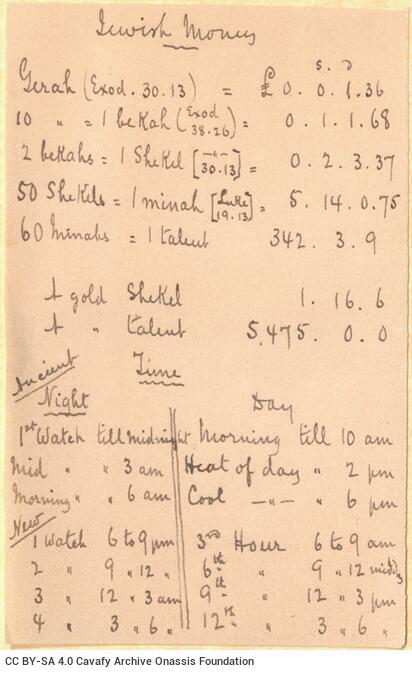 Jewish Money
s. d
Gerah (Exod. 30.13) = £ 0. 0. 1.36
10 " = 1 bekah (Exod 38.26) = 0. 1. 1.68
2 bekahs = 1 Shekel [—"— 30.13] = 0. 2. 3.37
50 Shekels = 1 minah [Luke 19.13] = 5. 14. 0.75
60 Minahs = 1 talent 342. 3. 9
A gold Shekel 1. 16. 6
A " talent 5,475. 0. 0
Time
Ancient
Night Day
1st Watch till midnight Morning till 10 am
Mid " " 3 am Heat of day " 2 pm
Morning " " 6 am Cool —"— " 6 pm
New
1 Watch 6 to 9 pm 3rd Hour 6 to 9 am
2 " 9 " 12 " 6th " 9 " 12 midd
3 " 12 " 3 am 9th " 12 " 3 pm
4 " 3 " 6 " 12th " 3 " 6 "
CC BY-SA 4.0 Cavafy Archive Onassis Foundation